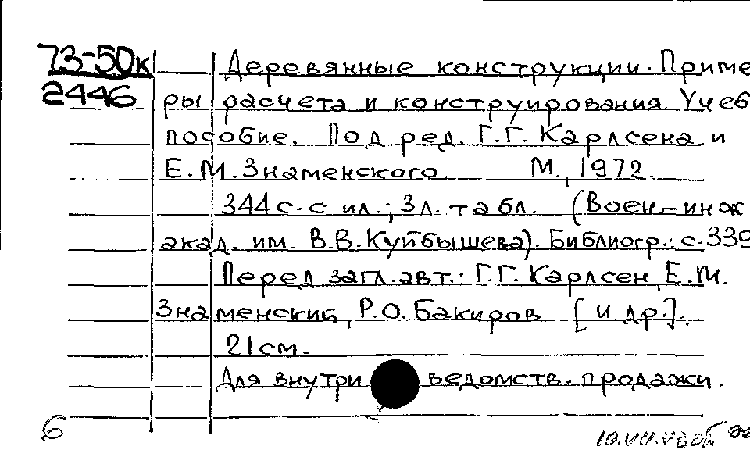 73-50к Деревянные конструкции. Приме
2446 ры расчета и конструирования Учеб
пособие. Под ред. Г.Г. Карлсена и
Е.М. Знаменского М., 1972.
344 с. с ил.; 3 л. табл. (Воен-инж
акад. им. В.В. Куйбышева). Библиогр.: с. 339
Перед загл. авт.: Г.Г. Карлсен, Е.М.
Знаменский, Р.О. Бакиров [и др.].
21 см.
Для внутриведомств. продажи.
6